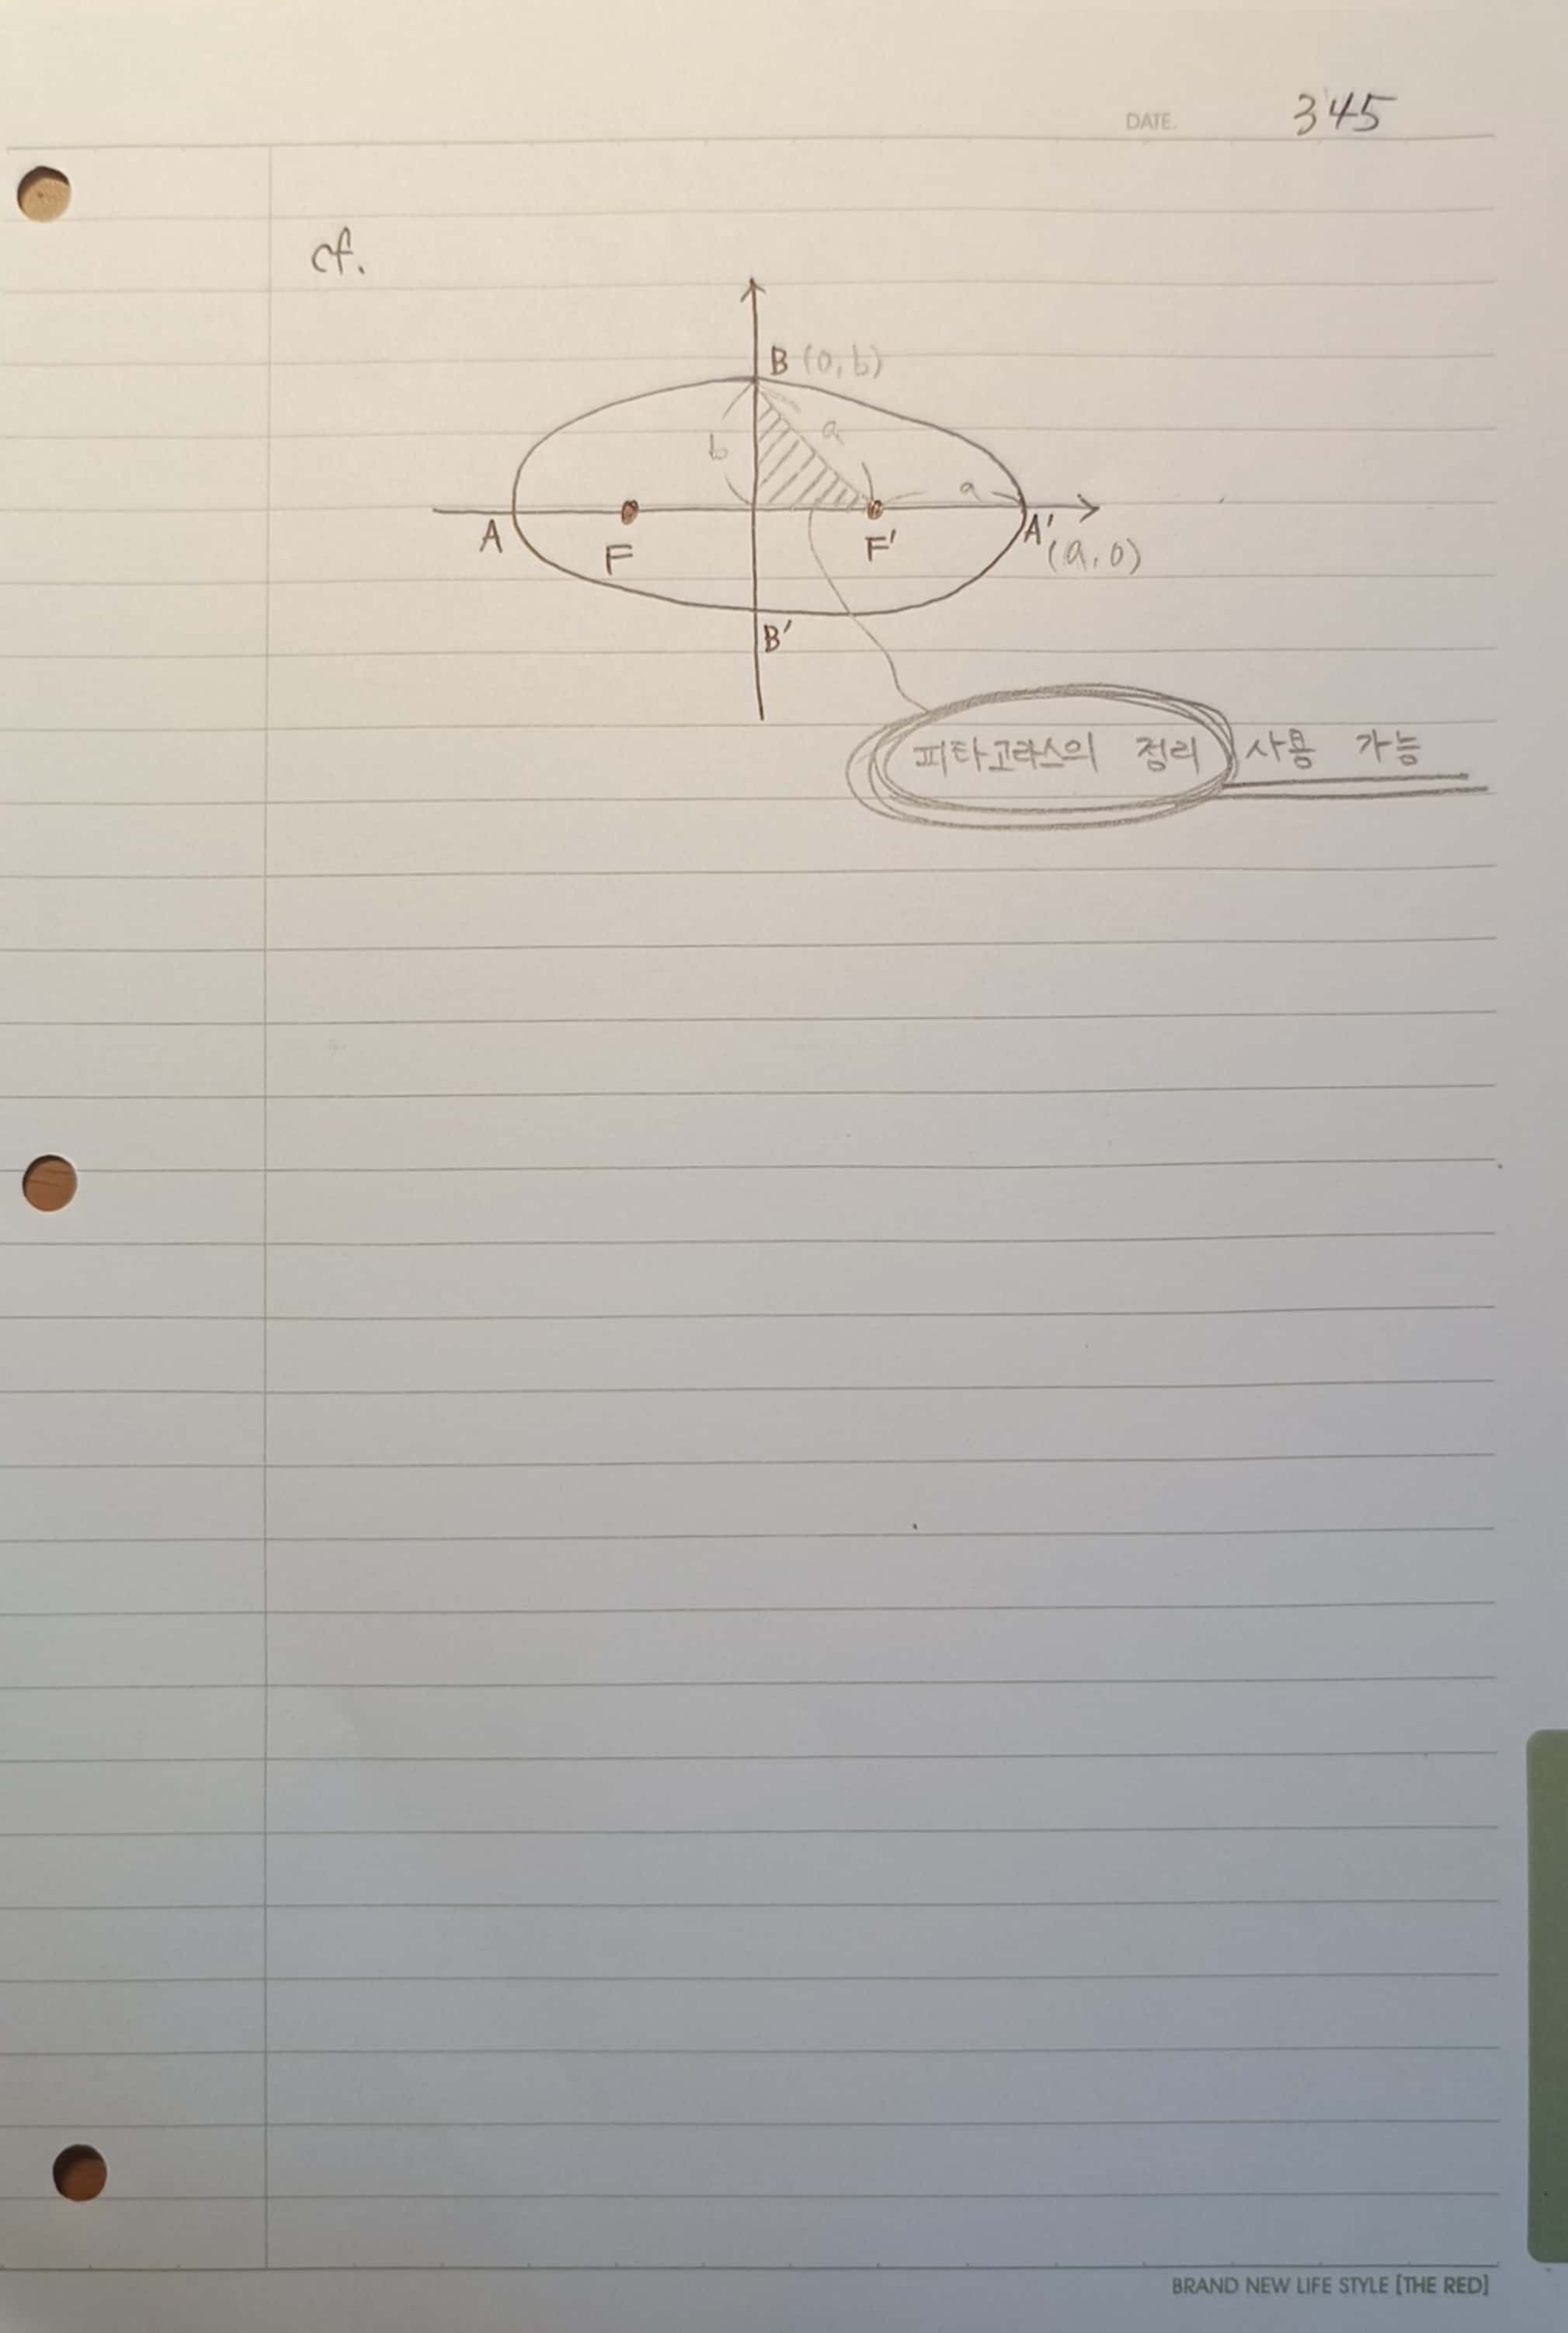 DATE. 345
cf.
B (0, b)
a
b
a
A F F' A' (a, 0)
B'
피타고라스의 정리 사용 가능
BRAND NEW LIFE STYLE [THE RED]